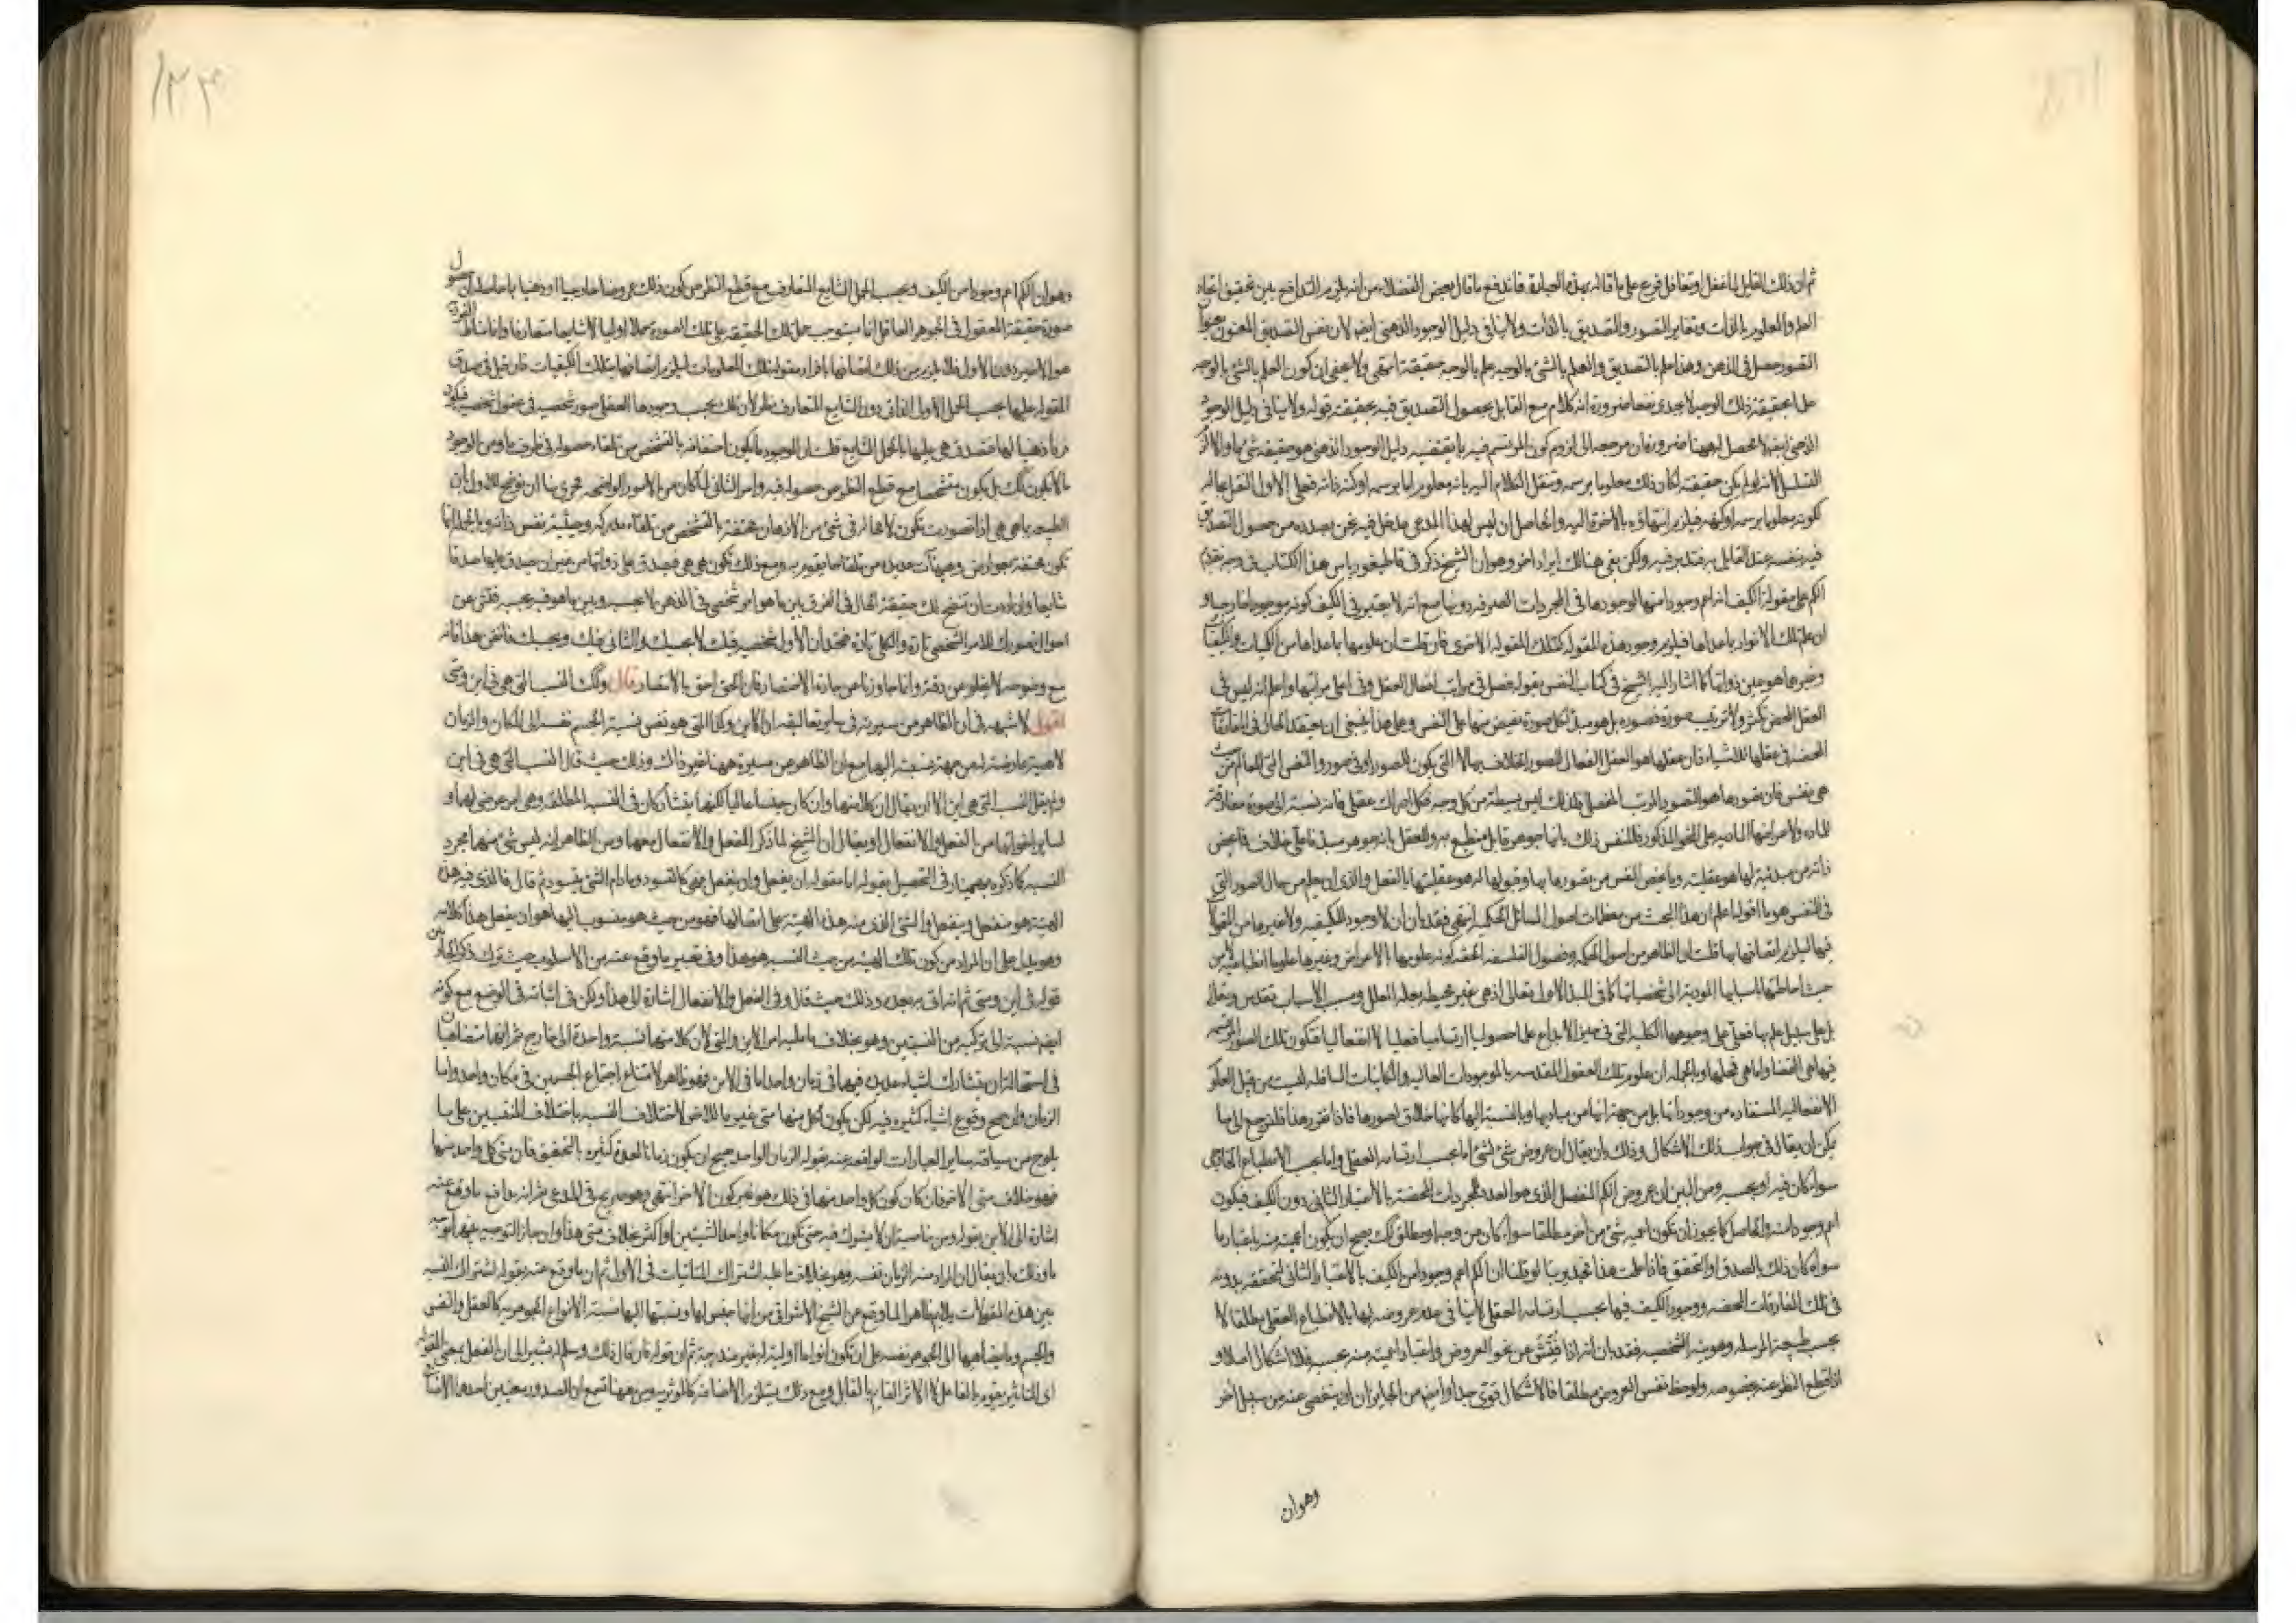 ثم ان ذلك القايل لما غفل او تغافل فرع على ما قاله بهذه العبارة فاندفع ما قال بعض الفضلاء من انه يلزم التدافع بين تحقيق اتحاد
العلم والمعلوم بالذات وتغاير التصور والتصديق بالذات ولا ينافى دليل الوجود الذهنى ايضا لان نفس التصديق
التصور حصل فى الذهن وهذا علم بالتصديق والعلم بالشئ بالوجه علم بالوجه حقيقة انتهى ولا يخفى ان كون العلم بالشئ بالوجه
علما بحقيقة ذلك الوجه لا يجدى نفعا ضرورة انه كلام مع القايل بحصول التصديق فيه بحقيقته قوله ولا ينافى دليل الوجود
الذهنى ايضا لا محصل له ههنا ضرورة ان مرجعه الى لزوم كون المرتسم فيه ما يقتضيه دليل الوجود الذهنى هو حقيقة شئ ما والا لزم
التسلسل لانه لو لم يكن حقيقته لكان ذلك معلوما برسمه وننقل الكلام اليه بانه معلوم اما برسمه او كنه ذاته فعلى الاول
لكونه معلوما برسمه او كنهه فيلزم انتهاؤه بالاخرة اليه والحاصل ان ليس لهذا المدعى مدخل فيما نحن بصدده من حصول التصديق
فيه بنفسه عند القايل به فتدبر فيه ولكن بقى هنالك ايراد اخر وهو ان الشيخ ذكر فى قاطيغورياس هذا الكتاب فى وجه تقدم
الكم على مقولة الكيف انه اعم وجودا منها لوجودها فى المجردات الصرفه دونها مع انه لا يعتبر فى الكيف كونه موجودا خارجيا و
ان علم تلك الانوار بما عداها فيلزم وجود هذه المقوله كتلك المقوله الاخرى فان قلت ان علومها بما عداها من الكليات والكيفيات
وغيرها هو عين ذواتها كما اشار اليه الشيخ فى كتاب النفس بقوله فصل فى مراتب افعال العقل وفى اعلى مراتبها واعلم انه ليس فى
العقل المحض تكثر ولا ترتيب صورة فصورة بل هو مبدأ لكل صورة تفيض منها على النفس وعلى هذا ينبغى ان يعتقد الحال فى المفارقات
المحضه فى عقلها للاشياء فان عقلها هو العقل الفعال للصور الخلاق لها لا التى يكون للصور او فى صور والنفس التى للعالم من حيث
هى نفس فان تصورها هو التصور المرتب المفصل فلذلك ليس بسيطة من كل وجه فكل ادراك عقلى فانه نسبة الى صورة مفارقة
للمادة ولاعراضها الماديه على النحو المذكور فللنفس ذلك بانها جوهر قابل منطبع به وللعقل بانه جوهر مبدأ فاعل خلاق فما يخص
ذاته من مبدئيته لها هو عقليته وما يخص النفس من تصورها بها وقبولها له هو عقليتها بالفعل والذى ان يعلم من حال الصور التى
فى النفس هو ما اقوله اعلم ان هذا البحث من معظمات اصول المسائل الحكميه انتهى فقد بان ان لا وجود للكيفيه ولا غيرها من المقولات
فيها ليلزم اتصافها بها قلت ان الظاهر من اصول الحكمة وفصول الفلسفة الحقه كونه علومها بالاعراض وغيرها علوما انطباعيه لا من
حيث احاطتها باسبابها المودية الى شخصياتها كما فى المبدأ الاول تعالى اذ هى غير محيطه بعلة العلل ومسبب الاسباب تقدس وتعالى
بل على سبيل علم بها فعلى على وجوهها الكليه التى فى حيز الابداع على حصولها ارتساميا فعليا لا انفعاليا فتكون تلك الصور المرتسمه
فيها هى القضا واما هى فمحلها وبالجملة ان علوم تلك العقول المقدسه بالموجودات العاليه والكاينات السافله ليست من قبيل العلوم
الانفعاليه المستفاده من وجوداتها بل من جهة انها من مباديها وبالنسبة اليها كانها خلاق لصورها فاذا تقرر هذا فلنرجع الى ما
يمكن ان يقال فى جواب ذلك الاشكال وذلك بان يقال ان عروض شئ لشئ اما بحسب ارتسامه العقلى واما بحسب الانطباع الخارجى
سواء كان فيه او بحسبه ومن البين ان عروض الكم المنفصل الذى هو العدد للمجردات المحضه بالاعتبار الثانى دون الكيف فيكون
اعم وجودا منه والحاصل كما يجوز ان تكون اعميه شئ من اخر مطلقا سواء كان من وجه او مطلق كذلك يصح ان يكون اعميته منه باعتبار ما
سواء كان ذلك بالصدق او التحقق فاذا علمت هذا فتدبر بنا لو قلنا ان الكم اعم وجودا من الكيف بالاعتبار الثانى لتحققه بدونه
فى تلك المفارقات المحضه ووجود الكيف فيها بحسب ارتسامه العقلى لا ينافى عدم عروضه لها بالانطباع العقلى مطلقا لا
بحسب طبيعته المرسله وهويته الشخصيه فقد بان انه اذا فتش عن نحو العروض واعتبار اعميته منه بحسبه فلا اشكال اصلا و
اذا قطع النظر عنه بخصوصه ولوحظ نفس العروض مطلقا فالاشكال قوى جدا وايضا من الجايز ان ان يتفصى عنه من سبيل اخر
وهو ان
وهو ان الكم اعم وجودا من الكيف وبحسب الحمل الشايع المتعارف مع قطع النظر عن كون ذلك عروضا خارجيا او ذهنيا بما حاصله ان حصول
صورة حقيقة المعقول فى الجوهر العاقل انما يستوجب حمل تلك الحقيقة على تلك الصورة حملا اوليا لا شايعا متعارفا وانما مناط الفردية
هو الاخير دون الاول فلا يلزم من ذلك اتصافها بافراد مقولة تلك المعلومات ليلزم اتصافها بتلك الكيفيات فان قيل فى صدق
المقوله عليها بحسب الحمل الاول الذاتى دون الشايع المتعارف نظر لان تلك بحسب وجودها العقلى صور شخصيه فى عقول شخصيه فيكون
فردا ذهنيا لها فتصدق هى عليها بالحمل الشايع قلت ان الوجود ما يكون احتفافه بالتشخص من تلقاء حصوله فى ظرف ما ومن الوجود
ما لا يكون كذلك بل يكون متشخصا مع قطع النظر عن حصوله فيه وامر الثانى لما كان من الامور الواضحه فحرى بنا ان نوضح الاول بان
الطبيعه بما هى هى اذا تصورت تكون لا محالة فى شئ من الاذهان محتفة بالتشخص من تلقاء مدركه وحيثية نفس ذاته وبالجملة انها
تكون محتفة بعوارض وهيئات عديدة من تلقاء ما يقوم به ومع ذلك تكون هى هى فيصدق على ذواتها من غير ان يصدق عليها صدقا
شايعا وان اردت ان تتضح لك حقيقة الحال فى الفرق بين ما هو امر شخصى فى الذهن لا بحسبه وبين ما هو فيه بحسبه ففتش عن
احوال تصورك للامر الشخصى تارة والكلى تارة فتجد ان الاول شخصيه فيك لا بحسبك والثانى فيك وبحسبك فاتقن هذا فانه
مع وضوحه لا يخلو عن دقة وانا تجاوزنا عن جادة الاختصار فان الحق احق بالانتصار قال وكذلك النسب التى هى فى اين ومتى
اقول لا شبهه فى ان الظاهر من سيرته فى ساير تعاليقه ان الاين وكذا المتى هو نفس نسبة الجسم نفسه الى المكان والزمان
لا هيئة عارضة له من جهة نسبته اليها مع ان الظاهر من مسيره ههنا غير ذلك وذلك حيث قال النسب التى هى فى اين
ولم يقل النسب التى هى اين الا ان يقال ان كلا منها وان كان جنسا عاليا لكنها يتشاركان فى النسبه المطلقه وهى امر عرضى لها و
لساير اخواتها من الفعل والانفعال او يقال ان الشيخ لما ذكر الفعل والانفعال معها ومن الظاهر انه ليس شئ منهما مجرد
النسبه كما ذكره بهمنيار فى التحصيل بقوله اما مقوله ان يفعل وان ينفعل فهى كالتسود ما دام الشئ يتسود ثم قال فالذى فيه هذه
الهيئة هو منفعل وينفعل والشئ الذى منه هذه الهيئة على اتصالها فهو من حيث هو منسوب اليها هو ان يفعل هذا كلامه
وهو يدل على ان المراد من كون تلك الهيئة من حيث النسبه هو هذا وفى تغيير ما وقع عنه من الاسلوب حيث ترك ذكر الجار من
قوله فى اين ومتى ثم انه اتى به بعده وذلك حيث قال وفى الفعل والانفعال اشارة الى هذا ولكن فى اتيانه فى الوضع مع كونه
ايضا نسبة الى تركيبه من النسبتين وهو بخلاف ما عليه امر الاين والمتى لان كلا منهما نسبة واحدة الى خارج ثم انهما
فى استحالة ان يتشارك اشياء عديدة فيهما فى زمان واحد اما فى الاين فهو ظاهر لامتناع اجتماع الجسمين فى مكان واحد واما
الزمان وان صح وقوع اشياء كثيره فيه لكن يكون لكل منها متى غير ما للاخر لاختلاف النسبه باختلاف المنتسبين على ما
يلوح من سياقة ساير العبارات الواقعه عنه بقوله الزمان الواحد يصح ان يكون زمانا لعدة كثيره بالتحقيق فان متى كل واحد منها
فهو خلاف متى الاخر فان كان كون كل واحد منها فى ذلك هو غير كون الاخر انتهى وهو صريح فى المدعى ثم انه يدافع ما وقع عنه
اشارة الى الاين بقوله ومن خاصيته ان لا يشارك فيه حتى تكون مكانا واحدا لشيئين او اكثر بخلاف متى هذا وان جاز التوجيه
وذلك بان يقال ان المراد منه الزمان نفسه وهو بخلاف ما عليه اشتراك المتأينات فى الاول ثم ان ما وقع عنه بقوله اشتراك النسبه
بين هذه المقولات يلايم ظاهرا لما وقع عن الشيخ الاشراقى من انها جنس لها ونسبتها اليها نسبة الانواع الجوهريه كالعقل والنفس
والجسم وما يضاهيها الى الجوهر نفسه على ان تكون انواعا اولية له غير مندرجة ثم ان قوله فان قال ذلك وسلم له يشير الى ان الفعل بمعنى المقوله
اى التأثير يقوم بالفاعل لا الاثر القايم بالقابل ومع ذلك يستلزم الاضافة كالموثريه ومن ههنا تسمع ان الصدور بمعنيين احدهما الاضافى